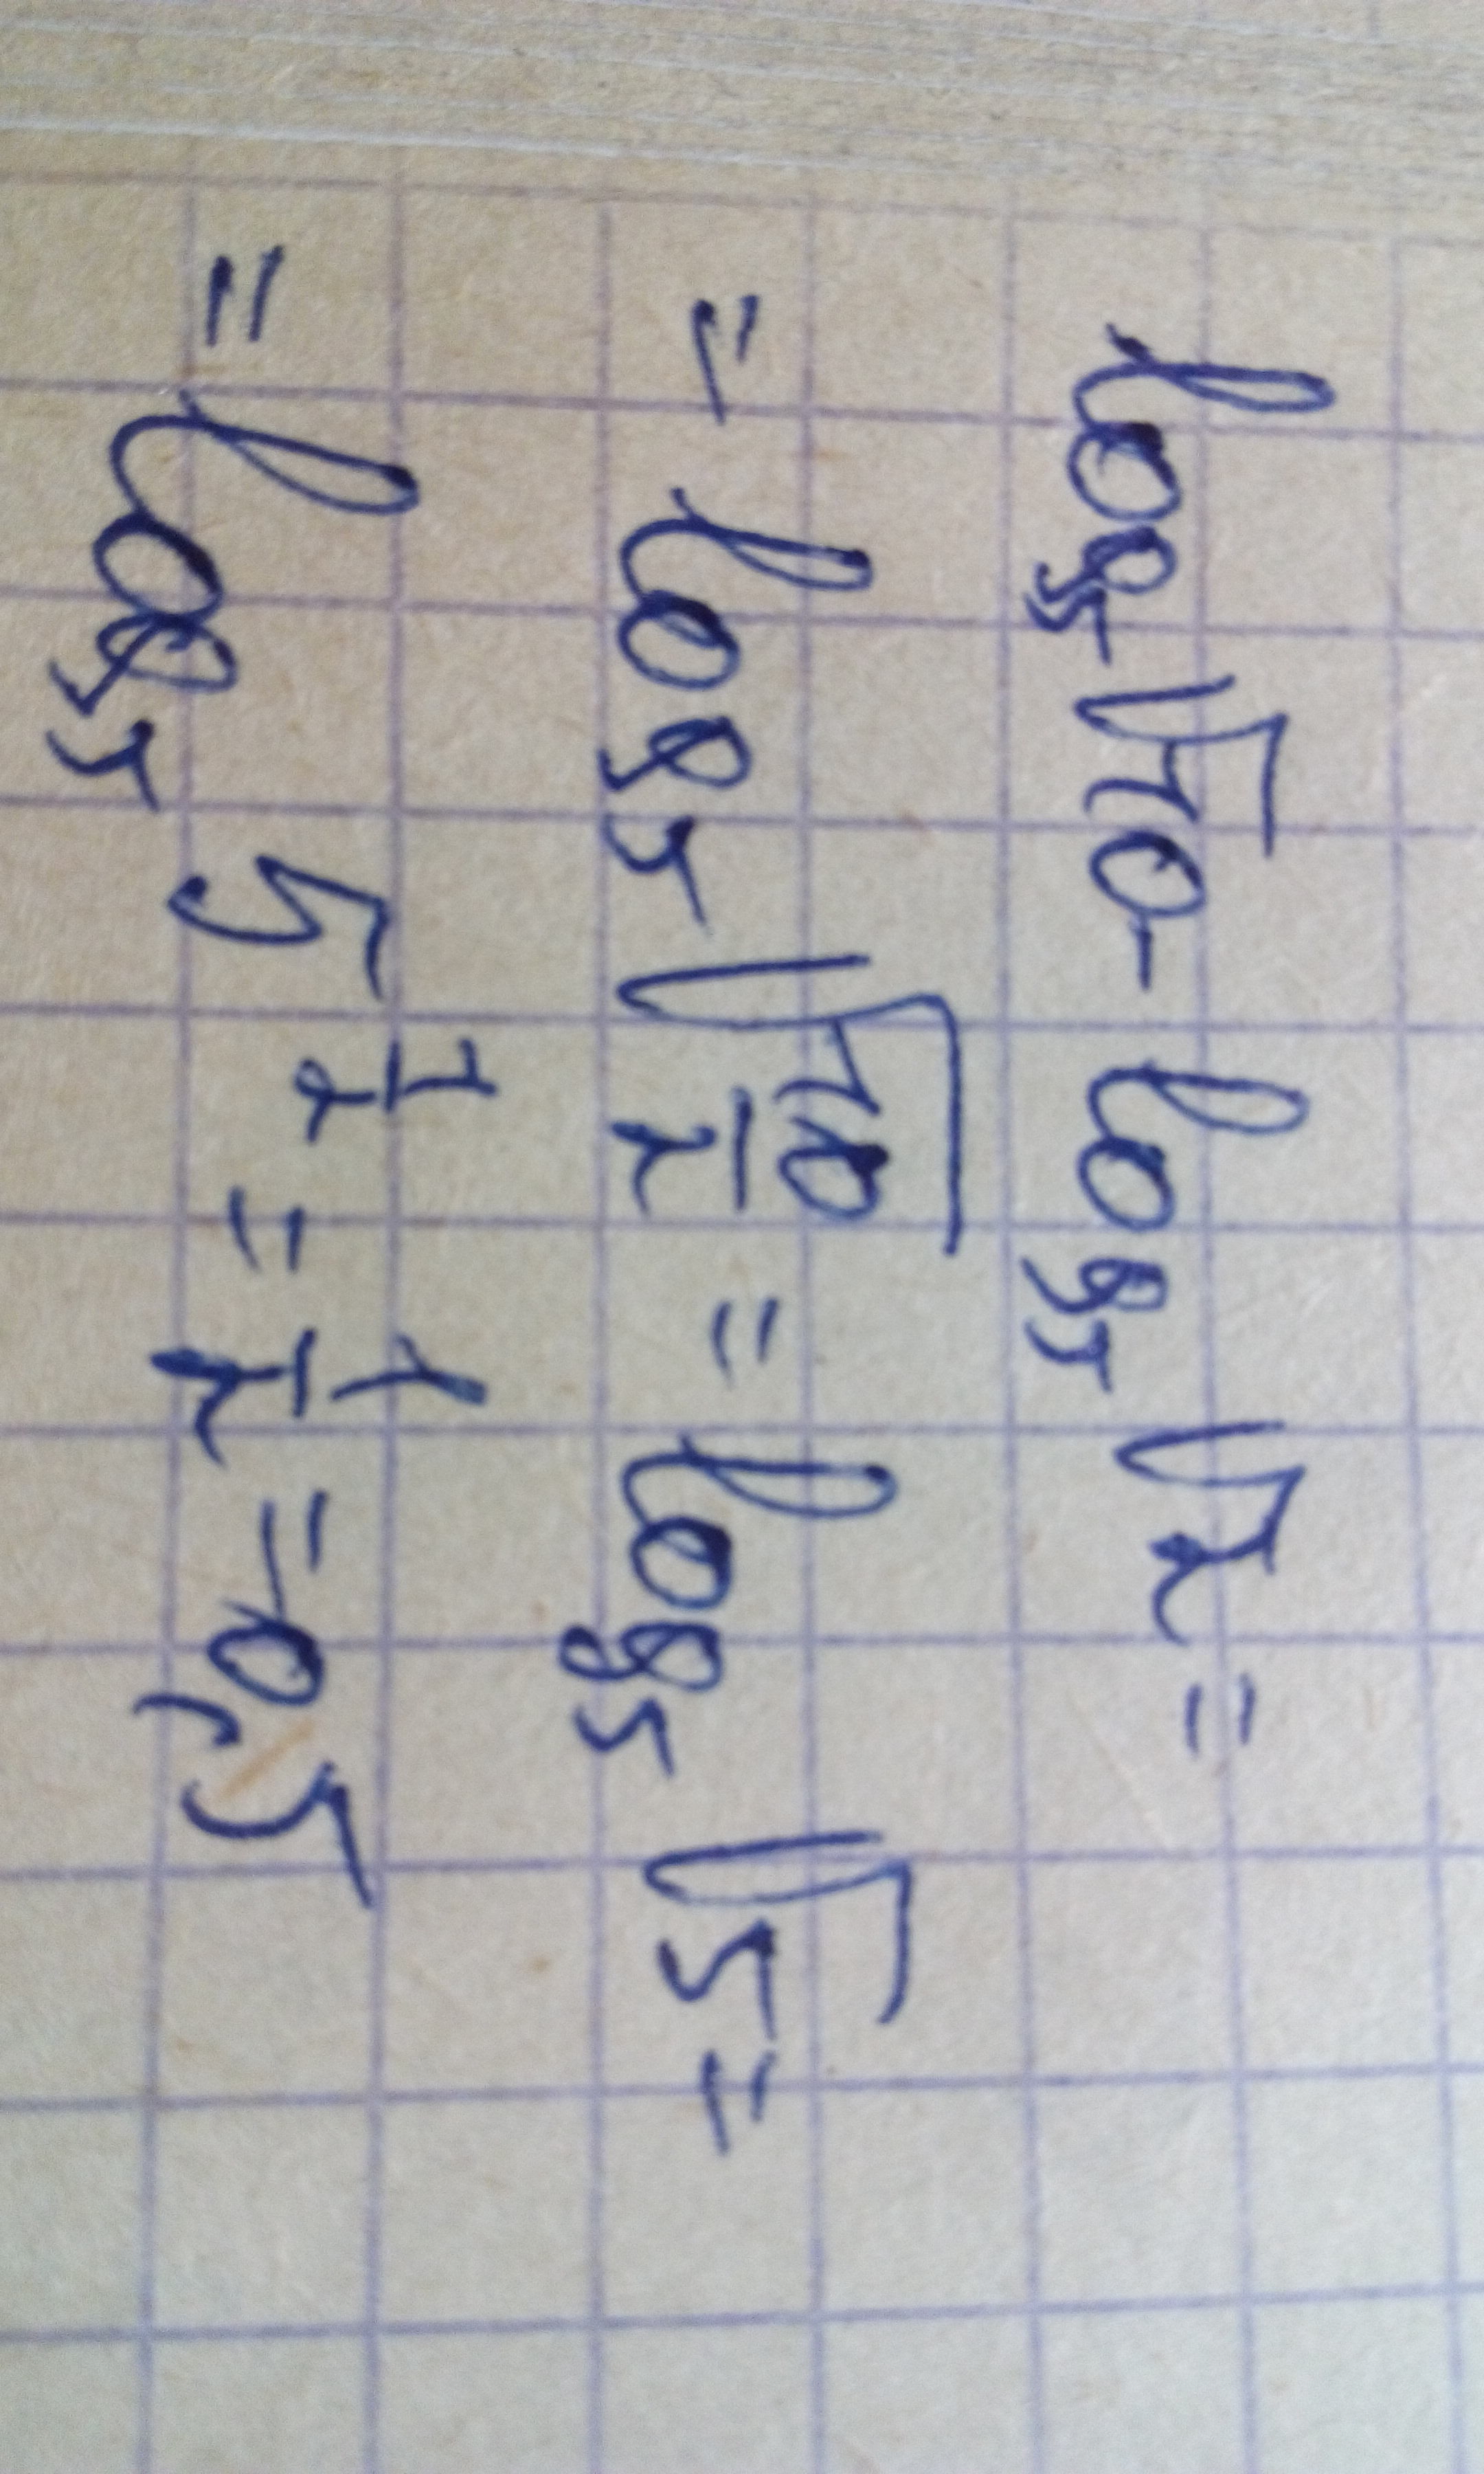 log₅√10 - log₅√2 =
= log₅√(10/2) = log₅√5 =
= log₅ 5^(1/2) = 1/2 = 0,5